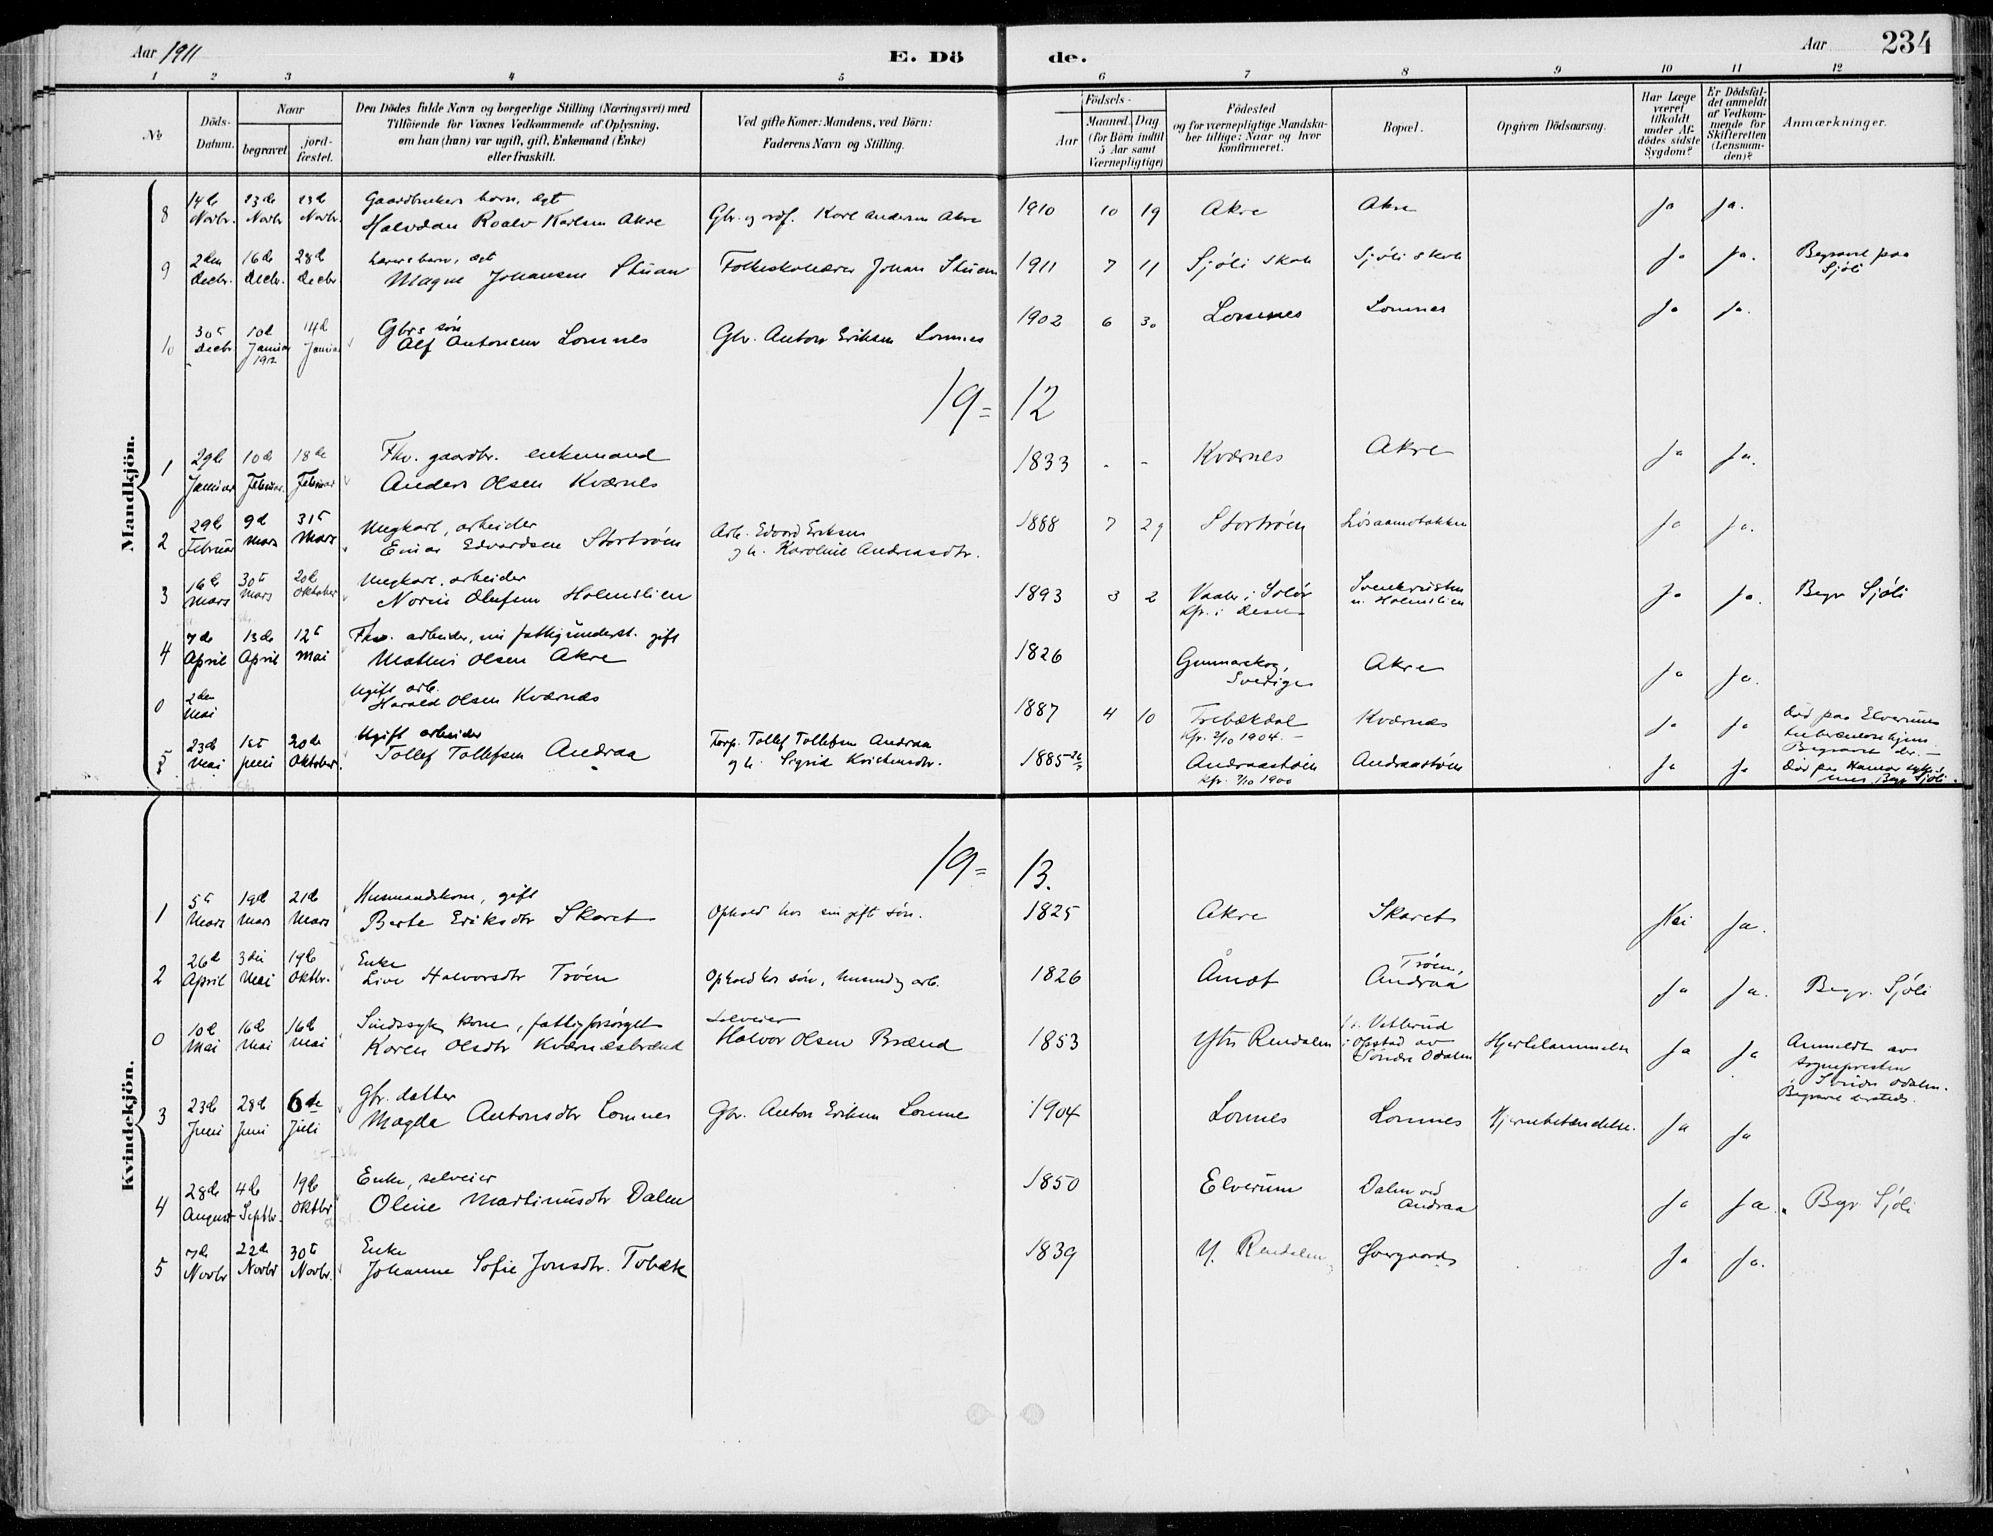 Aar 1911
E. Dö de.
Aar
234
1 2 3 4 5 6 7 8 9 10 11 12
No
Döds-
Datum.
Naar
begravet.
jord-
fæstet.
Den Dödes fulde Navn og borgerlige Stilling (Næringsvei) med
Tilföiende for Voxnes Vedkommende af Oplysning,
om han (hun) var ugift, gift, Enkemand (Enke)
eller fraskilt.
Ved gifte Koner: Mandens, ved Börn:
Faderens Navn og Stilling.
Födsels-
Aar
Maaned. Dag
(for Börn indtil
5 Aar samt
Værnepligtige)
Födested
og for værnepligtige Mandska-
ber tillige: Naar og hvor
konfirmeret.
Bopæl.
Opgiven Dödsaarsag.
Har Læge
været
tilkaldt
under Af-
dödes sidste
Sygdom?
Er Dödsfal-
det anmeldt
af Vedkom-
mende for
Skifteretten
(Lensman-
den)?
Anmærkninger.
Mandkjön.
8 14de Novbr. 23de Novbr 23de Novbr. Gaardbrukers barn, døpt
Halvdan Roalv Karlsen Akre Gbr. og ordf. Karl Andersen Akre 1910 10 19 Akre Akre Ja Ja.
9 2den Decbr. 16de Decbr. 28de Decbr Lærers barn, døpt
Magne Johansen Stuen Folkeskolelærer Johan Stuen 1911 7 11 Sjöli skole Sjöli skole Ja Ja. Begravet paa
Sjöli
10 30te Decbr. 10de Januar 1912 14de Januar Gbrs søn
Alf Antonsen Lomnes Gbr. Anton Eriksen Lomnes 1902 6 30 Lomnes Lomnes Ja Ja.
19 = 12
1 29de Januar 10de Februar. 18de Februar Fhv. gaardbr. enkemand
Anders Olsen Kværnes 1833 - - Kværnes Akre Ja Ja.
2 29de Februar 9de Mars 31te Mars Ungkarl, arbeider
Einar Edvardsen Stortrøen Arb. Edvard Eriksen
og h. Karoline Andreasdtr. 1888 7 29 Stortrøen Løsaamotakken Ja Ja.
3 16de Mars 30te Mars 20de Oktober Ungkarl, arbeider
Olufsen Holmslien 1893 3 2 Vaaler i Solør
Kfr. i desem
Holmslien Ja Ja. Begr Sjöli
4 7de April 13de April 12te Mai Fhv. arbeider, nu fattigunderst. gift
Mathis Olsen Akre 1826 Gunnarskog,
Sverige Akre Ja Ja.
0 2den Mai Ugift arb.
Harald Olsen Kværnes 1887 4 10 Trebækdal
kfr. 2/10 1904. Kværnes Ja Ja Død paa Elverums
tuberculosehjem
Begravet der. -
5 23de Mai 1ste Juni 20de Oktober. Ugift arbeider
Tollef Tollefsen Andraa Forp. Tollef Tollefsen Andraa
og h. Sigrid Kristensdtr. 1885 Andraastøen
kfr. 7/10 1900 Andraastøen Ja Ja Død paa Hamar
Begr Sjöli.
Kvindekjön.
19 = 13.
1 5te Mars 19de Mars 21de Mars Husmandskone, gift
Berte Eriksdtr Skaret Ophold hos sin gifte søn. 1825 Akre Skaret Nei Ja.
2 26de April 3die Mai 19de Oktbr. Enke
Live Halvorsdtr Trøen Ophold hos søn, husmand, arb. 1826 Åmot Trøen,
Andraa Ja Ja. Begr. Sjöli
0 10de Mai 16de Mai 16de Mai Sindssyk kone, fattigforsørget
Karen Olsdtr Kværnesbrænd Selveier
Halvor Olsen Brænd 1853 Ytre Rendalen
i Opstad av
Søndre Odalen Hjertelammelse Ja Ja Anmeldt av
sognepresten
i Søndre Odalen.
Begravet dersteds.
3 23de Juni 28de Juni 6te Juli Gbr. datter
Magda Antonsdtr Lomnes Gbr. Anton Eriksen Lomnes 1904 Lomnes Lomnes Hjernebetændelse. Ja Ja
4 28de August 4de Septbr. 19de Oktbr Enke, selveier
Oline Martinusdtr Dalen 1850 Elverum Dalen ved
Andraa Ja Ja. Begr Sjöli
5 7de Novbr 22de Novbr 30te Novbr. Enke
Johanne Sofie Jonsdtr. Tobæk 1839 Y. Rendalen Ja Ja.